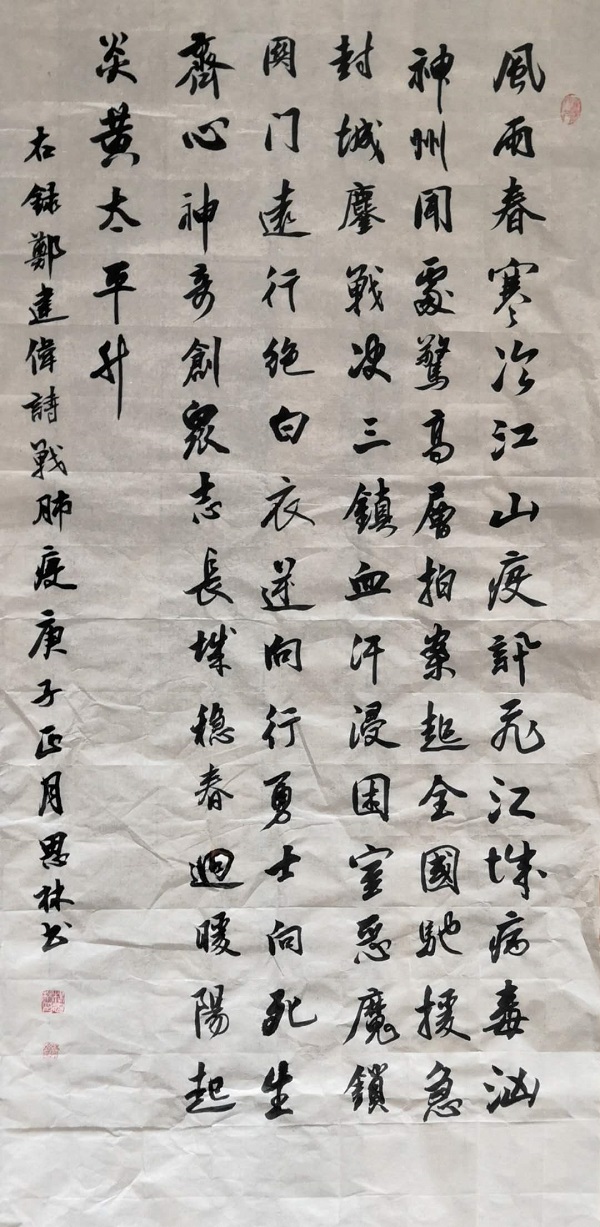 風雨春寒冷江山疫訊飛江城病毒汹
神州聞處驚高層拍案起全國馳援急
封城鏖戰决三鎮血汗浸困室惡魔鎖
國门遠行絶白衣逆向行勇士向死生
齊心神奇創衆志長城穩春迴暖陽起
炎黄太平升
右録鄭建偉詩戰肺疫庚子正月思林书